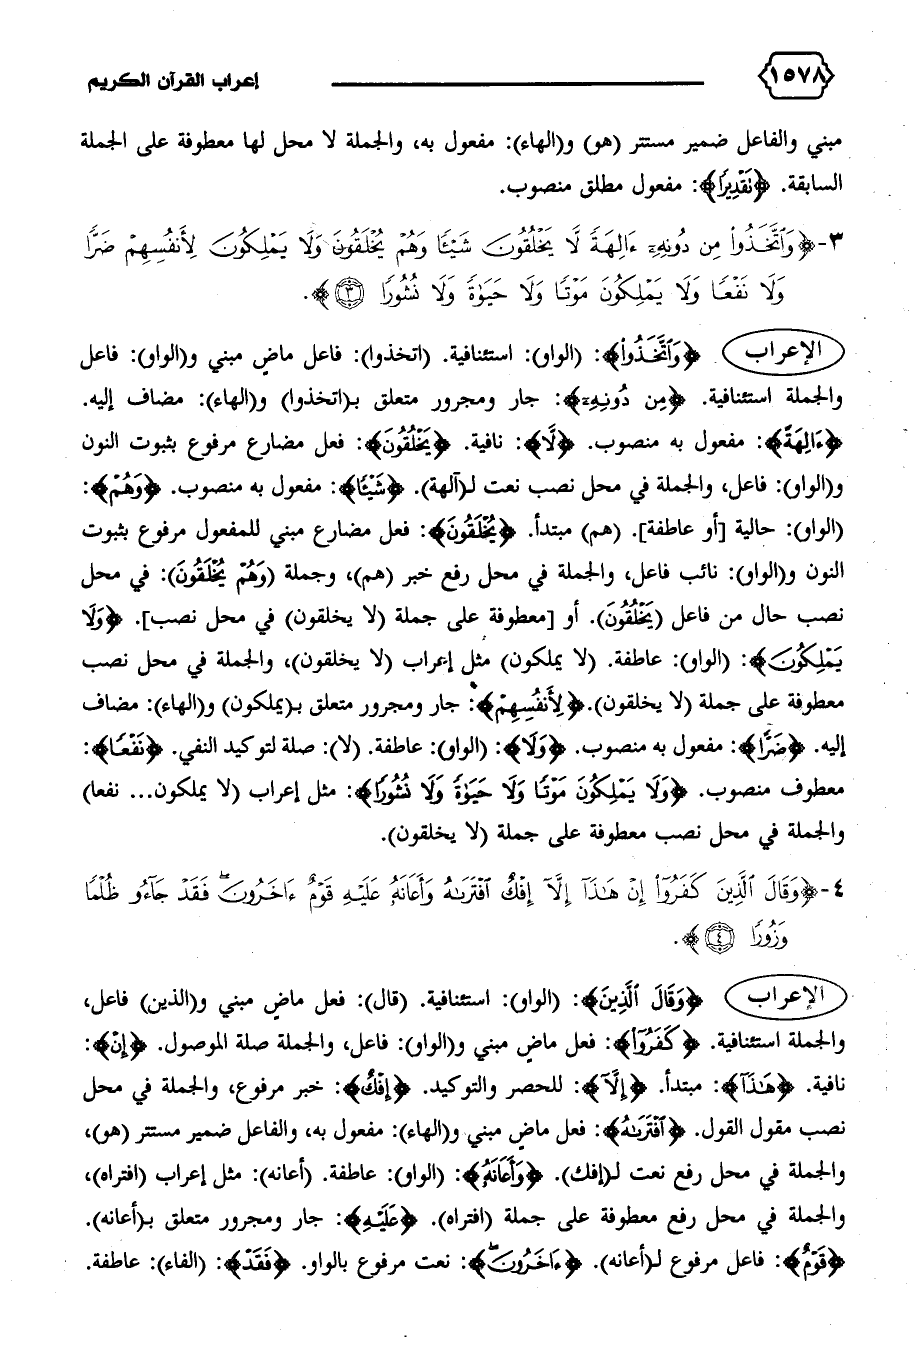 ١٥٧٨ إعراب القرآن الكريم
مبني والفاعل ضمير مستتر (هو) و(الهاء): مفعول به، والجملة لا محل لها معطوفة على الجملة
السابقة. ﴿نَقْدِيرًا﴾: مفعول مطلق منصوب.
٣- ﴿وَٱتَّخَذُوا۟ مِن دُونِهِۦٓ ءَالِهَةً لَّا يَخْلُقُونَ شَيْـًٔا وَهُمْ يُخْلَقُونَ وَلَا يَمْلِكُونَ لِأَنفُسِهِمْ ضَرًّا
وَلَا نَفْعًا وَلَا يَمْلِكُونَ مَوْتًا وَلَا حَيَوٰةً وَلَا نُشُورًا ۝٣﴾.
الإعراب ﴿وَٱتَّخَذُوا۟﴾: (الواو): استئنافية. (اتخذوا): فاعل ماضٍ مبني و(الواو): فاعل
والجملة استئنافية. ﴿مِن دُونِهِۦٓ﴾: جار ومجرور متعلق بـ(اتخذوا) و(الهاء): مضاف إليه.
﴿ءَالِهَةً﴾: مفعول به منصوب. ﴿لَّا﴾: نافية. ﴿يَخْلُقُونَ﴾: فعل مضارع مرفوع بثبوت النون
و(الواو): فاعل، والجملة في محل نصب نعت لـ(آلهة). ﴿شَيْـًٔا﴾: مفعول به منصوب. ﴿وَهُمْ﴾:
(الواو): حالية [أو عاطفة]. (هم) مبتدأ. ﴿يُخْلَقُونَ﴾: فعل مضارع مبني للمفعول مرفوع بثبوت
النون و(الواو): نائب فاعل، والجملة في محل رفع خبر (هم)، وجملة (وَهُمْ يُخْلَقُونَ): في محل
نصب حال من فاعل (يَخْلُقُونَ). أو [معطوفة على جملة (لا يخلقون) في محل نصب]. ﴿وَلَا
يَمْلِكُونَ﴾: (الواو): عاطفة. (لا يملكون) مثل إعراب (لا يخلقون)، والجملة في محل نصب
معطوفة على جملة (لا يخلقون). ﴿لِأَنفُسِهِمْ﴾: جار ومجرور متعلق بـ(يملكون) و(الهاء): مضاف
إليه. ﴿ضَرًّا﴾: مفعول به منصوب. ﴿وَلَا﴾: (الواو): عاطفة. (لا): صلة لتوكيد النفي. ﴿نَفْعًا﴾:
معطوف منصوب. ﴿وَلَا يَمْلِكُونَ مَوْتًا وَلَا حَيَوٰةً وَلَا نُشُورًا﴾: مثل إعراب (لا يملكون... نفعا)
والجملة في محل نصب معطوفة على جملة (لا يخلقون).
٤- ﴿وَقَالَ ٱلَّذِينَ كَفَرُوٓا۟ إِنْ هَـٰذَآ إِلَّآ إِفْكٌ ٱفْتَرَىٰهُ وَأَعَانَهُۥ عَلَيْهِ قَوْمٌ ءَاخَرُونَ ۖ فَقَدْ جَآءُو ظُلْمًا
وَزُورًا ۝٤﴾.
الإعراب ﴿وَقَالَ ٱلَّذِينَ﴾: (الواو): استئنافية. (قال): فعل ماضٍ مبني و(الذين) فاعل،
والجملة استئنافية. ﴿كَفَرُوٓا۟﴾: فعل ماضٍ مبني و(الواو): فاعل، والجملة صلة الموصول. ﴿إِنْ﴾:
نافية. ﴿هَـٰذَآ﴾: مبتدأ. ﴿إِلَّآ﴾: للحصر والتوكيد. ﴿إِفْكٌ﴾: خبر مرفوع، والجملة في محل
نصب مقول القول. ﴿ٱفْتَرَىٰهُ﴾: فعل ماضٍ مبني و(الهاء): مفعول به، والفاعل ضمير مستتر (هو)،
والجملة في محل رفع نعت لـ(إفك). ﴿وَأَعَانَهُۥ﴾: (الواو): عاطفة. (أعانه): مثل إعراب (افتراه)،
والجملة في محل رفع معطوفة على جملة (افتراه). ﴿عَلَيْهِ﴾: جار ومجرور متعلق بـ(أعانه).
﴿قَوْمٌ﴾: فاعل مرفوع لـ(أعانه). ﴿ءَاخَرُونَ ۖ﴾: نعت مرفوع بالواو. ﴿فَقَدْ﴾: (الفاء): عاطفة.